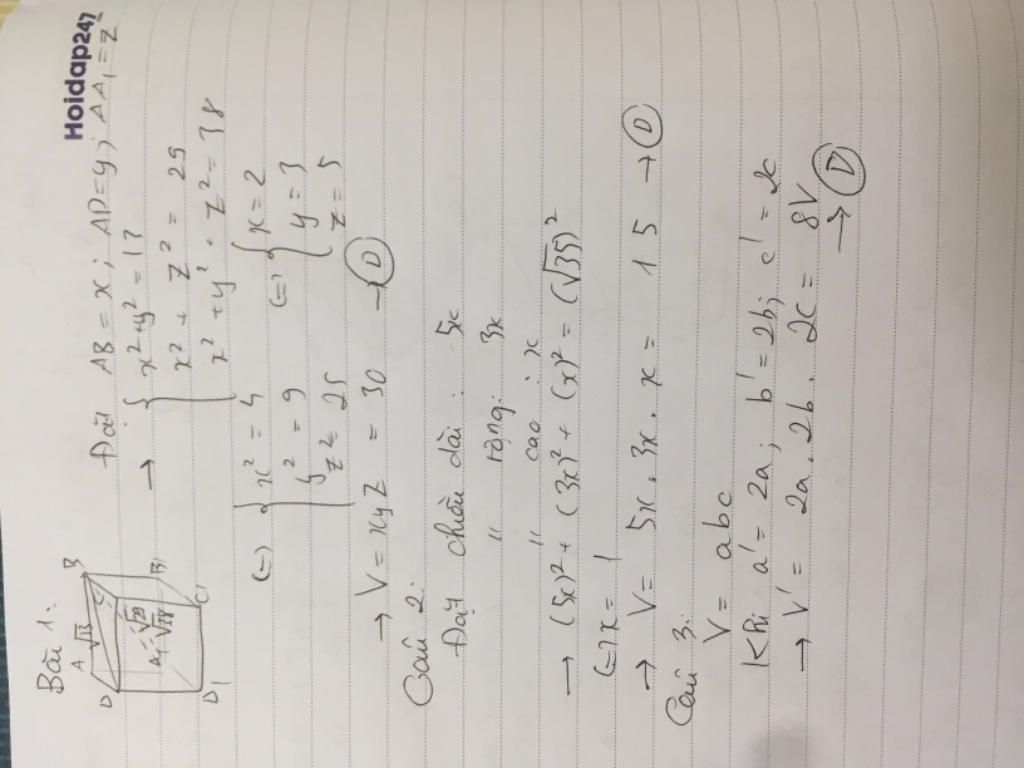 Hoidap247
Bài 1:
A B
D C
A1 B1
D1 C1
Đặt AB = x ; AD = y ; AA1 = z
→ { x² + y² = 13
x² + z² = 29
x² + y² + z² = 38
(=) { x² = 4 (=) { x = 2
y² = 9 y = 3
z² = 25 z = 5
→ V = xyz = 30 → D
Câu 2:
Đặt chiều dài : 5x
" rộng : 3x
" cao : x
→ (5x)² + (3x)² + (x)² = (√35)²
(=) x = 1
→ V = 5x . 3x . x = 15 → D
Câu 3:
V = abc
Khi a' = 2a ; b' = 2b ; c' = 2c
→ V' = 2a . 2b . 2c = 8V
→ D